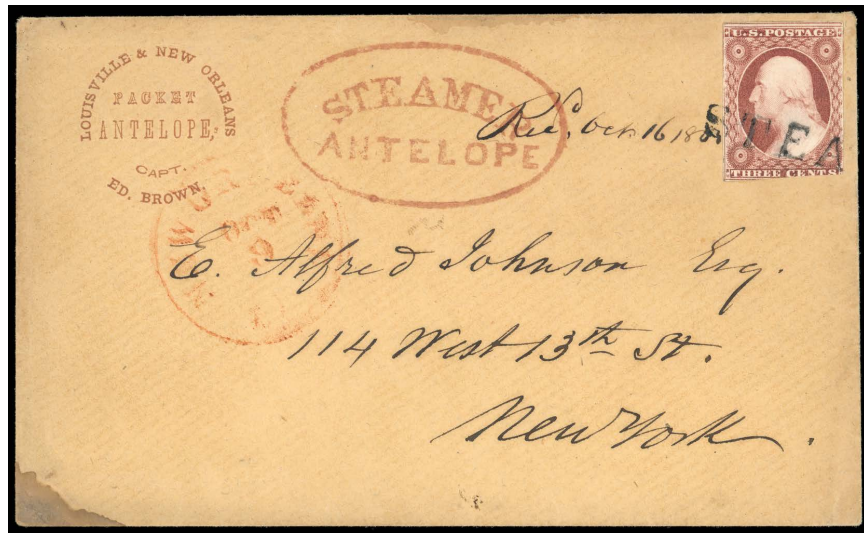 LOUISVILLE & NEW ORLEANS
PACKET
ANTELOPE,
CAPT.
ED. BROWN.
STEAMER
ANTELOPE
Recd, Oct. 16
U.S. POSTAGE
THREE CENTS
STEA
OCT
9
E. Alfred Johnson Esq.
114 West 13th St.
New York.